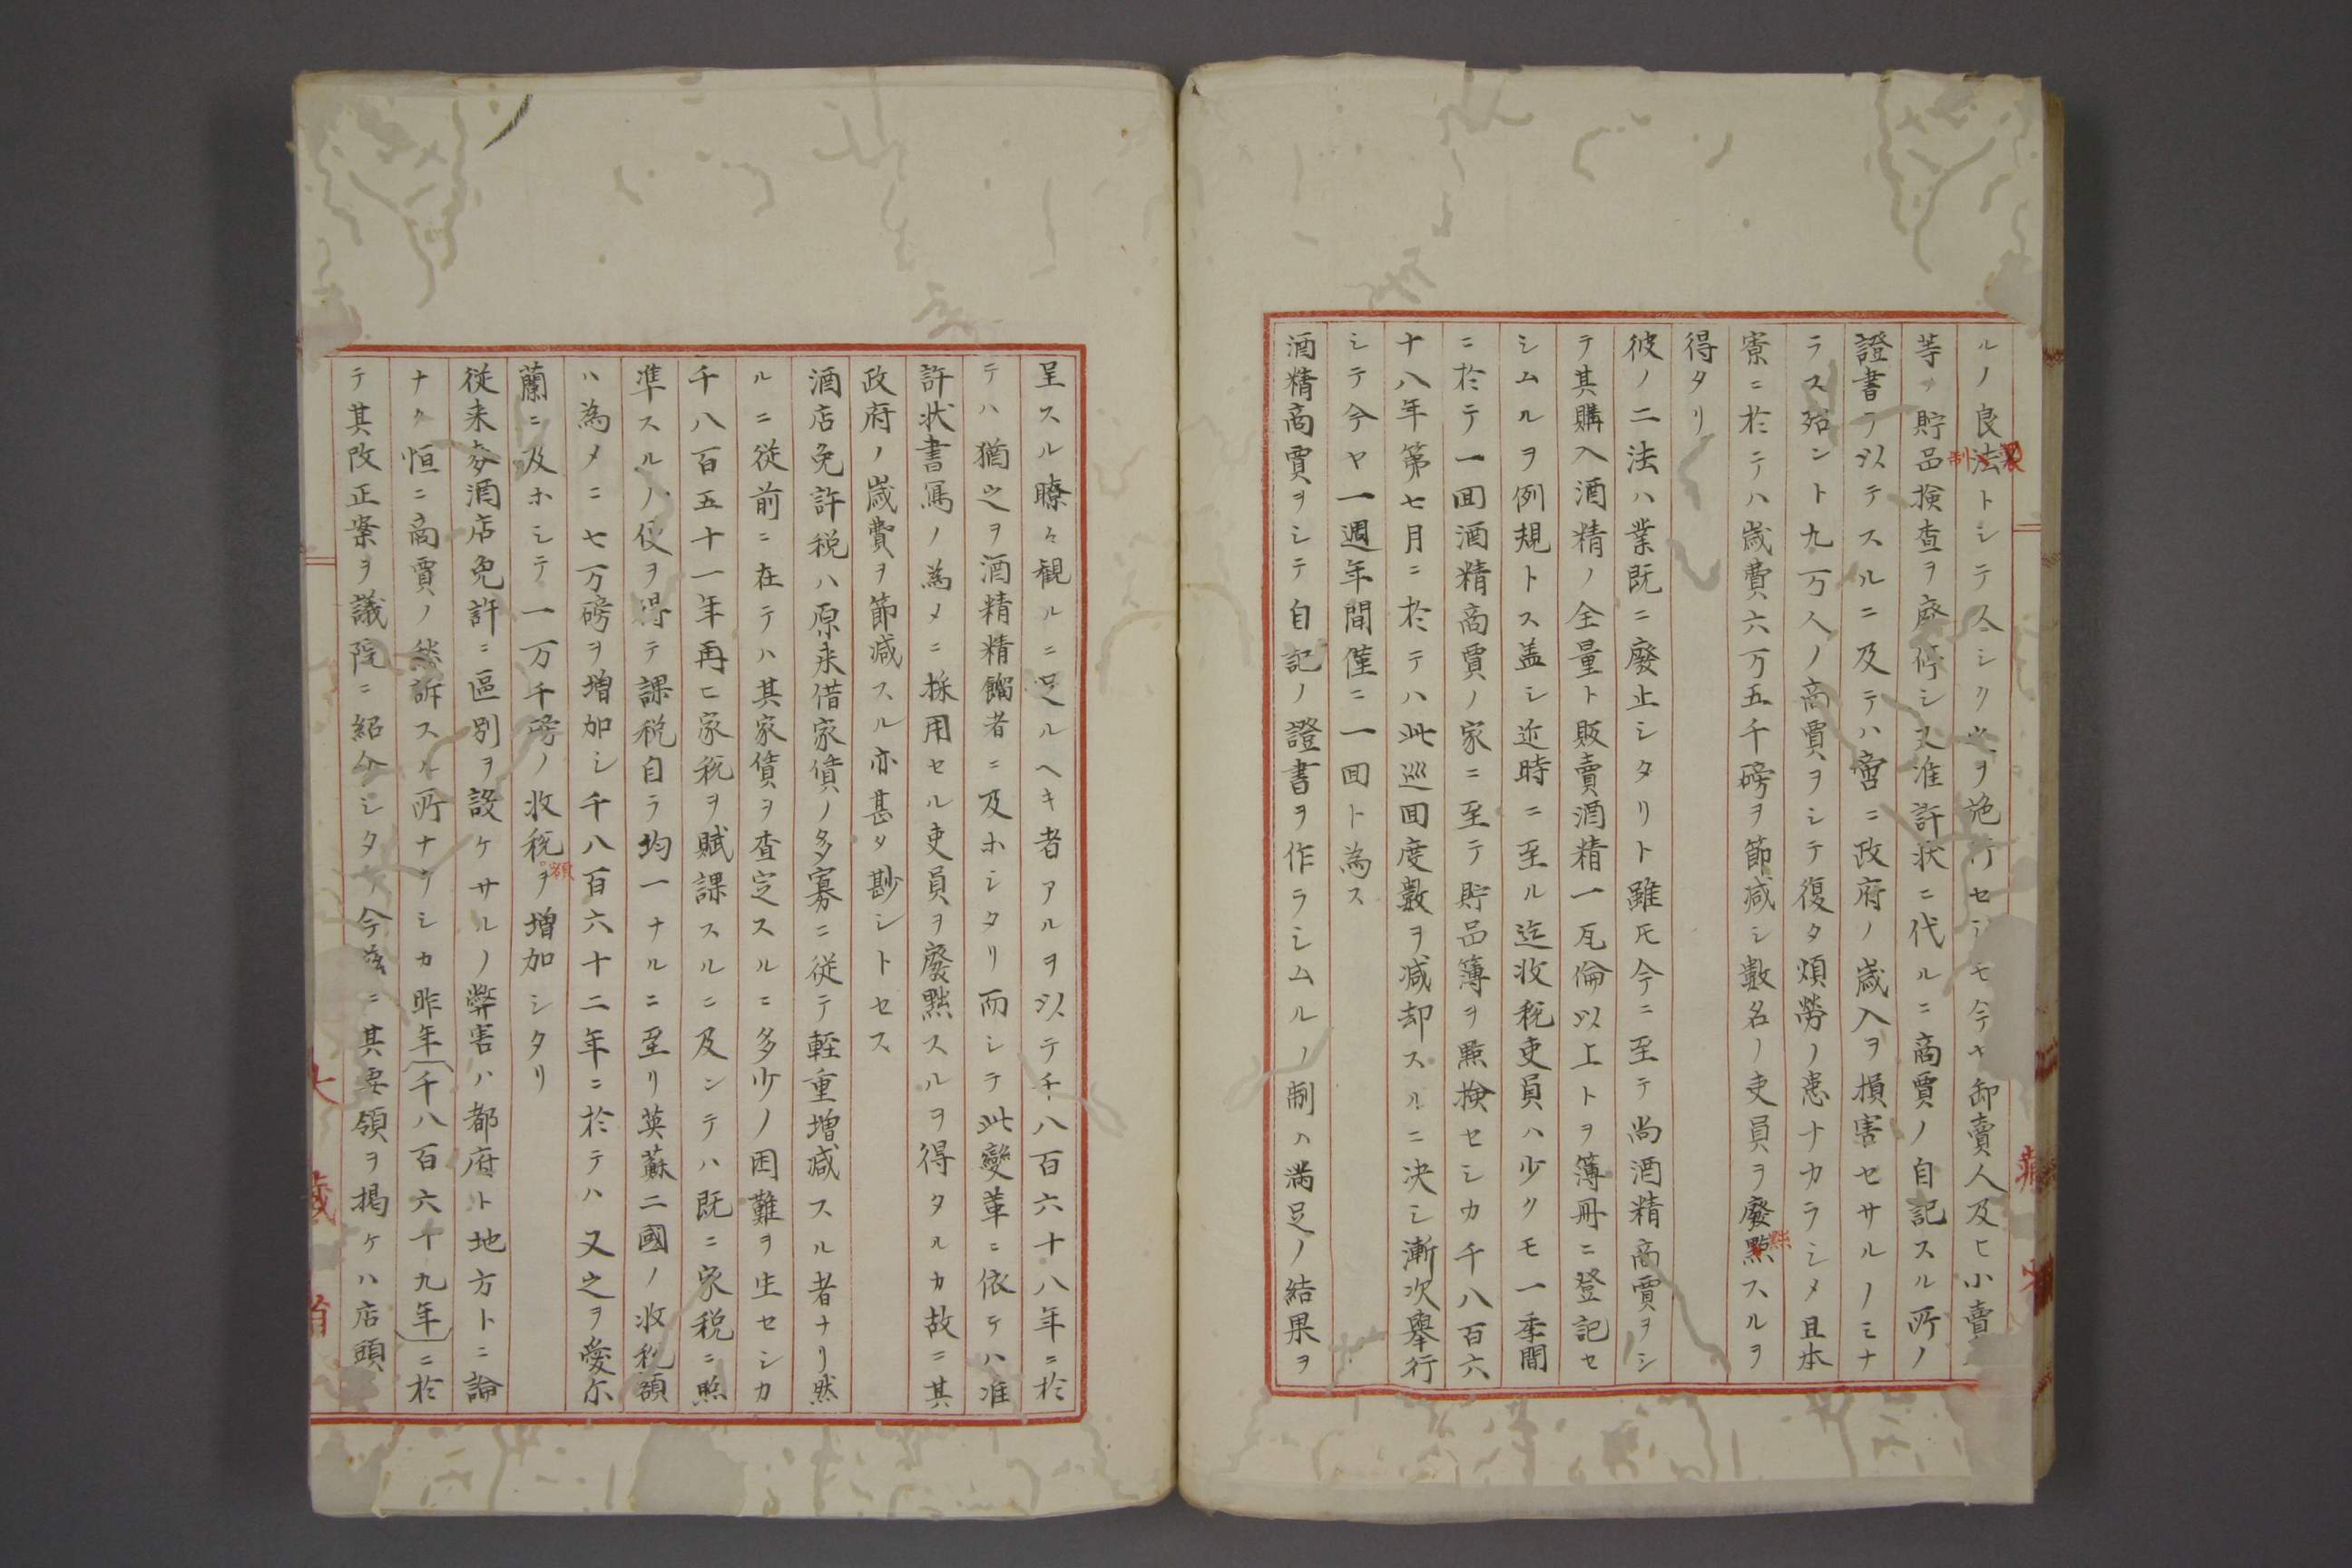 ルノ良法トシテ久シク之ヲ施行セシモ今ヤ卸賣人及ヒ小賣
制
等ノ貯品検査ヲ廢停シ又准許状ニ代ルニ商賈ノ自記スル所ノ
證書ヲ以テスルニ及テハ啻ニ政府ノ歳入ヲ損害セサルノミナ
ラス殆ント九万人ノ商賈ヲシテ復タ煩勞ノ患ナカラシメ且本
寮ニ於テハ歳費六万五千磅ヲ節减シ數名ノ吏員ヲ廢黜スルヲ
得タリ
彼ノ二法ハ業既ニ廢止シタリト雖𪜈今ニ至テ尚酒精商賈ヲシ
テ其購入酒精ノ全量ト販賣酒精一瓦倫以上トヲ簿冊ニ登記セ
シムルヲ例規トス盖シ近時ニ至ル迄收税吏員ハ少クモ一季間
ニ於テ一回酒精商賈ノ家ニ至テ貯品簿ヲ點検セシカ千八百六
十八年第七月ニ於テハ此巡回度數ヲ减却スルニ决シ漸次擧行
シテ今ヤ一週年間僅ニ一回ト為ス
酒精商賈ヲシテ自記ノ證書ヲ作ラシムルノ制ハ満足ノ結果ヲ
呈スル瞭々観ルニ足ルヘキ者アルヲ以テ千八百六十八年ニ於
テハ猶之ヲ酒精精餾者ニ及ホシタリ而シテ此變革ニ依テハ准
許状書寫ノ為メニ採用セル吏員ヲ廢黜スルヲ得タルカ故ニ其
政府ノ歳費ヲ節减スル亦甚タ尠シトセス
酒店免許税ハ原来借家債ノ多寡ニ従テ輕重増减スル者ナリ然
ルニ従前ニ在テハ其家債ヲ査定スルニ多少ノ困難ヲ生セシカ
千八百五十一年再ヒ家税ヲ賦課スルニ及ンテハ既ニ家税ニ照
準スルノ便ヲ得テ課税自ラ均一ナルニ至リ英蘇二國ノ收税額
ハ為メニ七万磅ヲ増加シ千八百六十二年ニ於テハ又之ヲ愛尔
蘭ニ及ホシテ一万千磅ノ收税額ヲ増加シタリ
従来麥酒店免許ニ區別ヲ設ケサルノ弊害ハ都府ト地方トニ論
ナク恒ニ商賈ノ愁訴スル所ナリシカ昨年（千八百六十九年）ニ於
テ其改正案ヲ議院ニ紹介シタリ今茲ニ其要領ヲ掲ケハ店頭